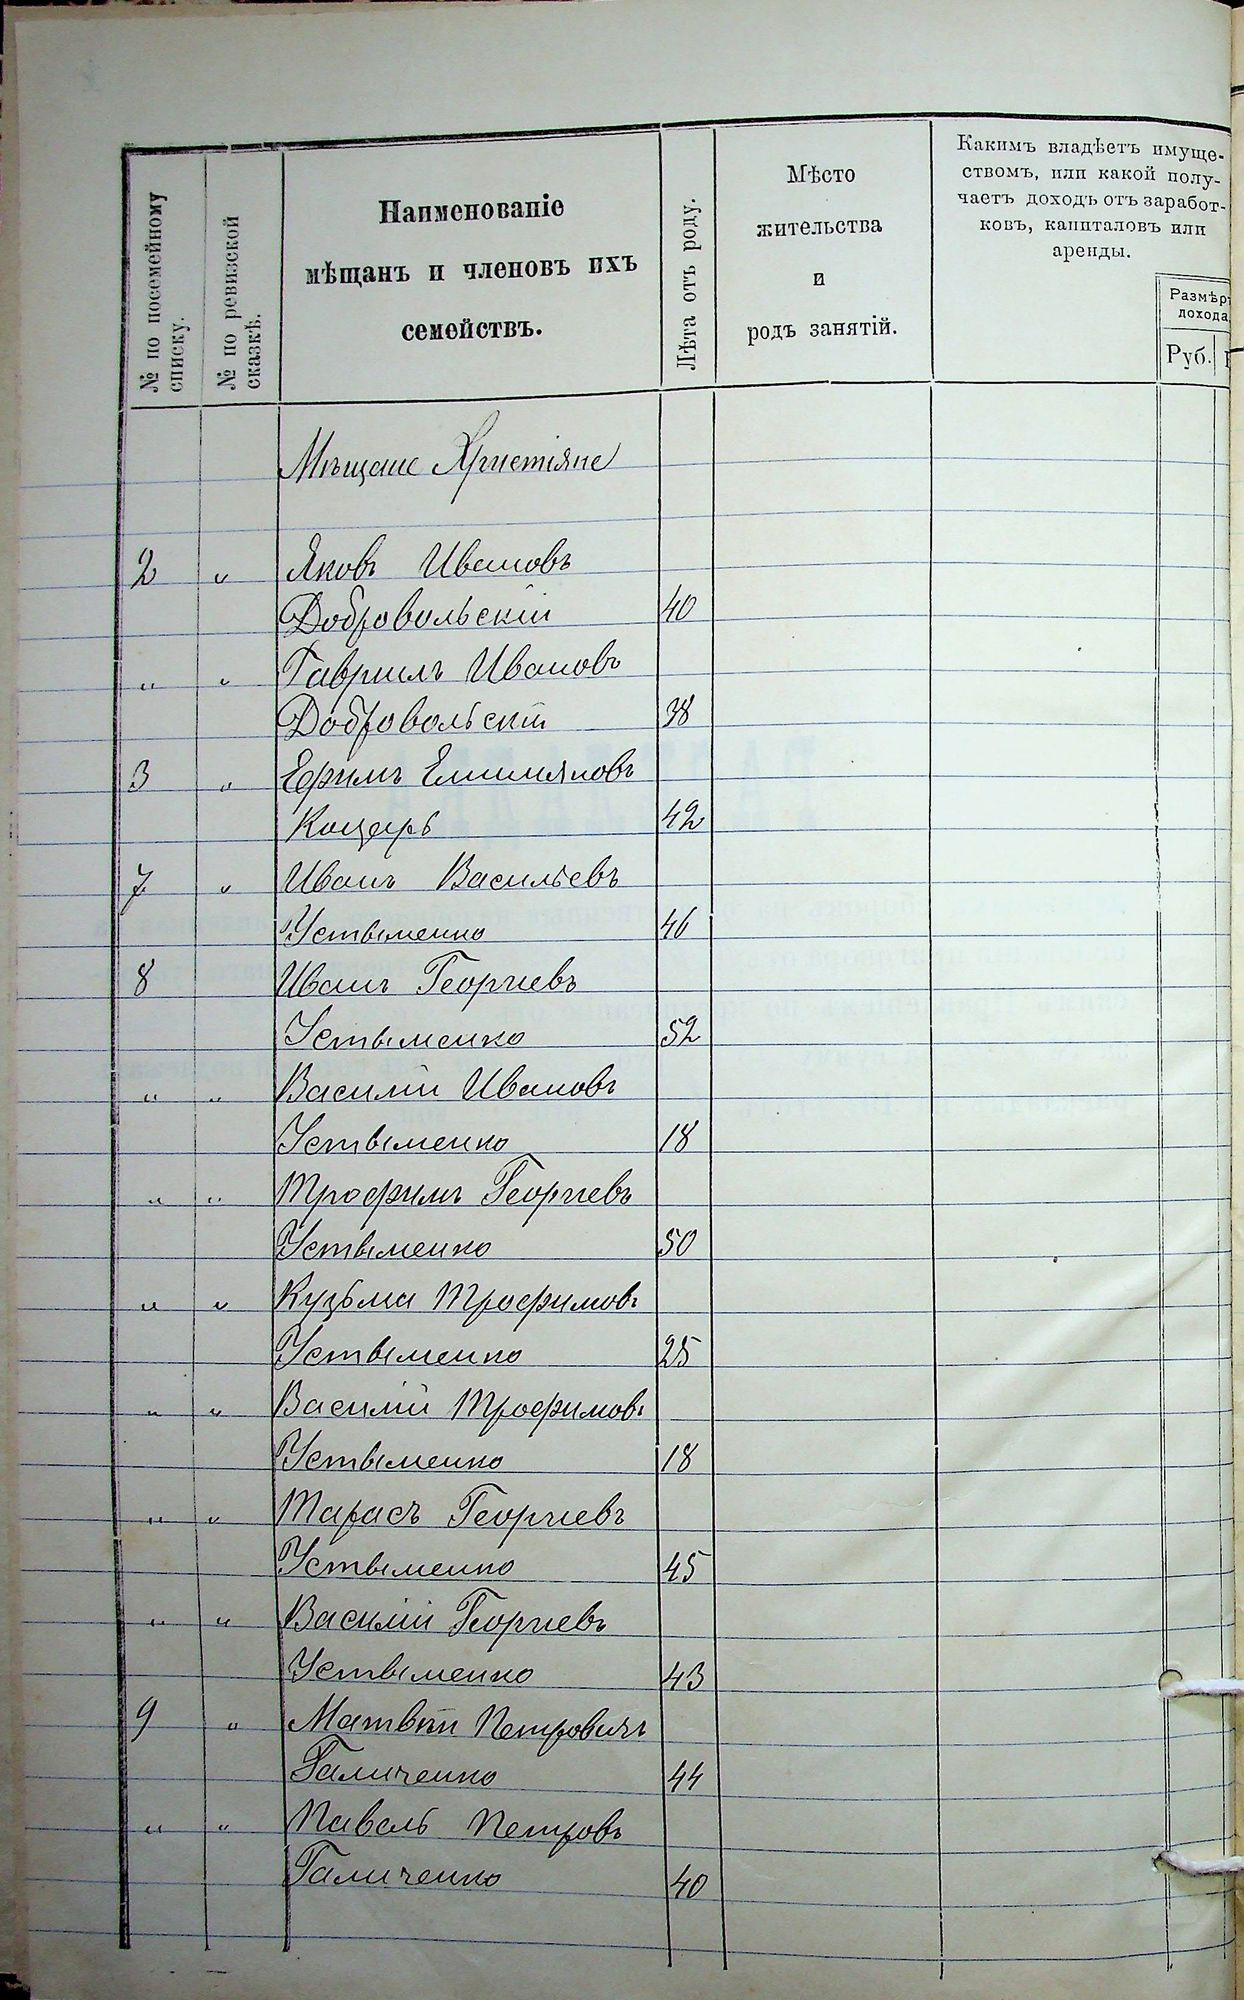 № по посемейному
списку.
№ по ревизской
сказкѣ.
Наименованіе
мѣщанъ и членовъ ихъ
семействъ.
Лѣта отъ роду.
Мѣсто
жительства
и
родъ занятій.
Какимъ владѣетъ имуще-
ствомъ, или какой полу-
чаетъ доходъ отъ заработ-
ковъ, капиталовъ или
аренды.
Размѣръ
дохода
Руб.
Мѣщане Христіяне
2 " Яковъ Ивановъ
Добровольскій 40
" " Гаврилъ Ивановъ
Добровольскій 38
3 " Ефимъ Емилияновъ
Коцарь 42
7 " Иванъ Васильевъ
Устыменко 46
8 Иванъ Георгиевъ
Устыменко 52
" " Василий Ивановъ
Устыменко 18
" " Трофимъ Георгиевъ
Устыменко 50
" " Кузьма Трофимовъ
Устыменко 25
" " Василий Трофимовъ
Устыменко 18
" " Тарасъ Георгиевъ
Устыменко 45
" " Василий Георгиевъ
Устыменко 43
9 " Матвѣй Петровичъ
Галиченко 44
" " Павелъ Петровъ
Галиченко 40